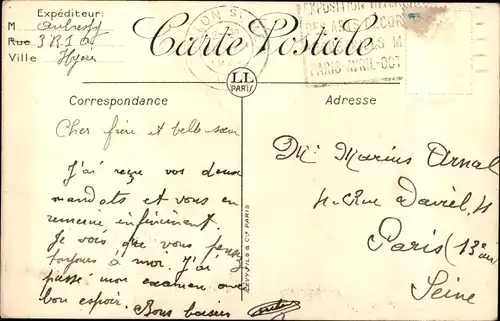 Expéditeur:
M
Rue 3 R.I.C.
Ville Hyères
Carte Postale
EXPOSITION INTERN
DES ARTS DÉCOR
PARIS AVRIL-OCT
LL
PARIS
Correspondance
Adresse
Cher frère et belle sœur
J'ai reçu vos deux
mandats et vous en
remercie infiniment.
Je vois que vous pensez
toujours à moi. J'ai
passé mon examen avec
bon espoir. Bons baisers
LEVY FILS & Cie PARIS
Mr Marius Arnal
4 Rue Daviel 4
Paris (13e arr)
Seine